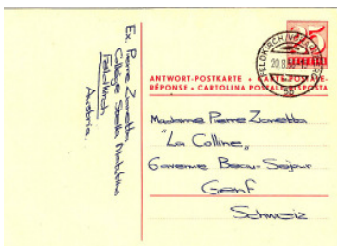 Ex Pierre Zanetta
Collège Stella Matutina
Feldkirch
Austria.
25
FELDKIRCH
20.8.
ANTWORT-POSTKARTE • CARTE POSTALE-
RÉPONSE • CARTOLINA POSTALE RISPOSTA
Madame Pierre Zanetta
"La Colline"
6 avenue Beau-Séjour
Genf
Schweiz